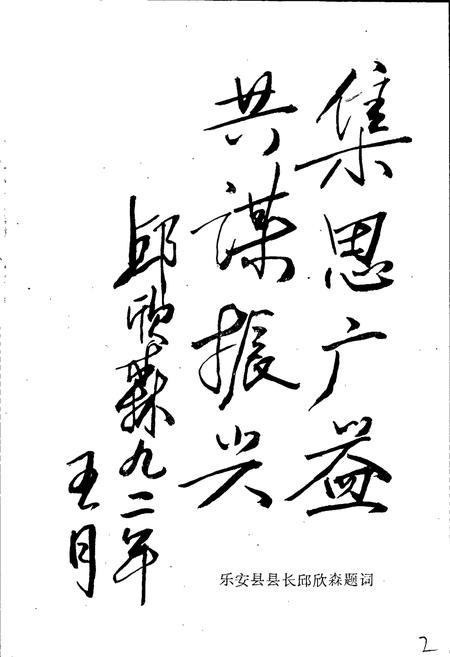 集思广益
共谋振兴
邱欣森九二年
五月
乐安县县长邱欣森题词
2